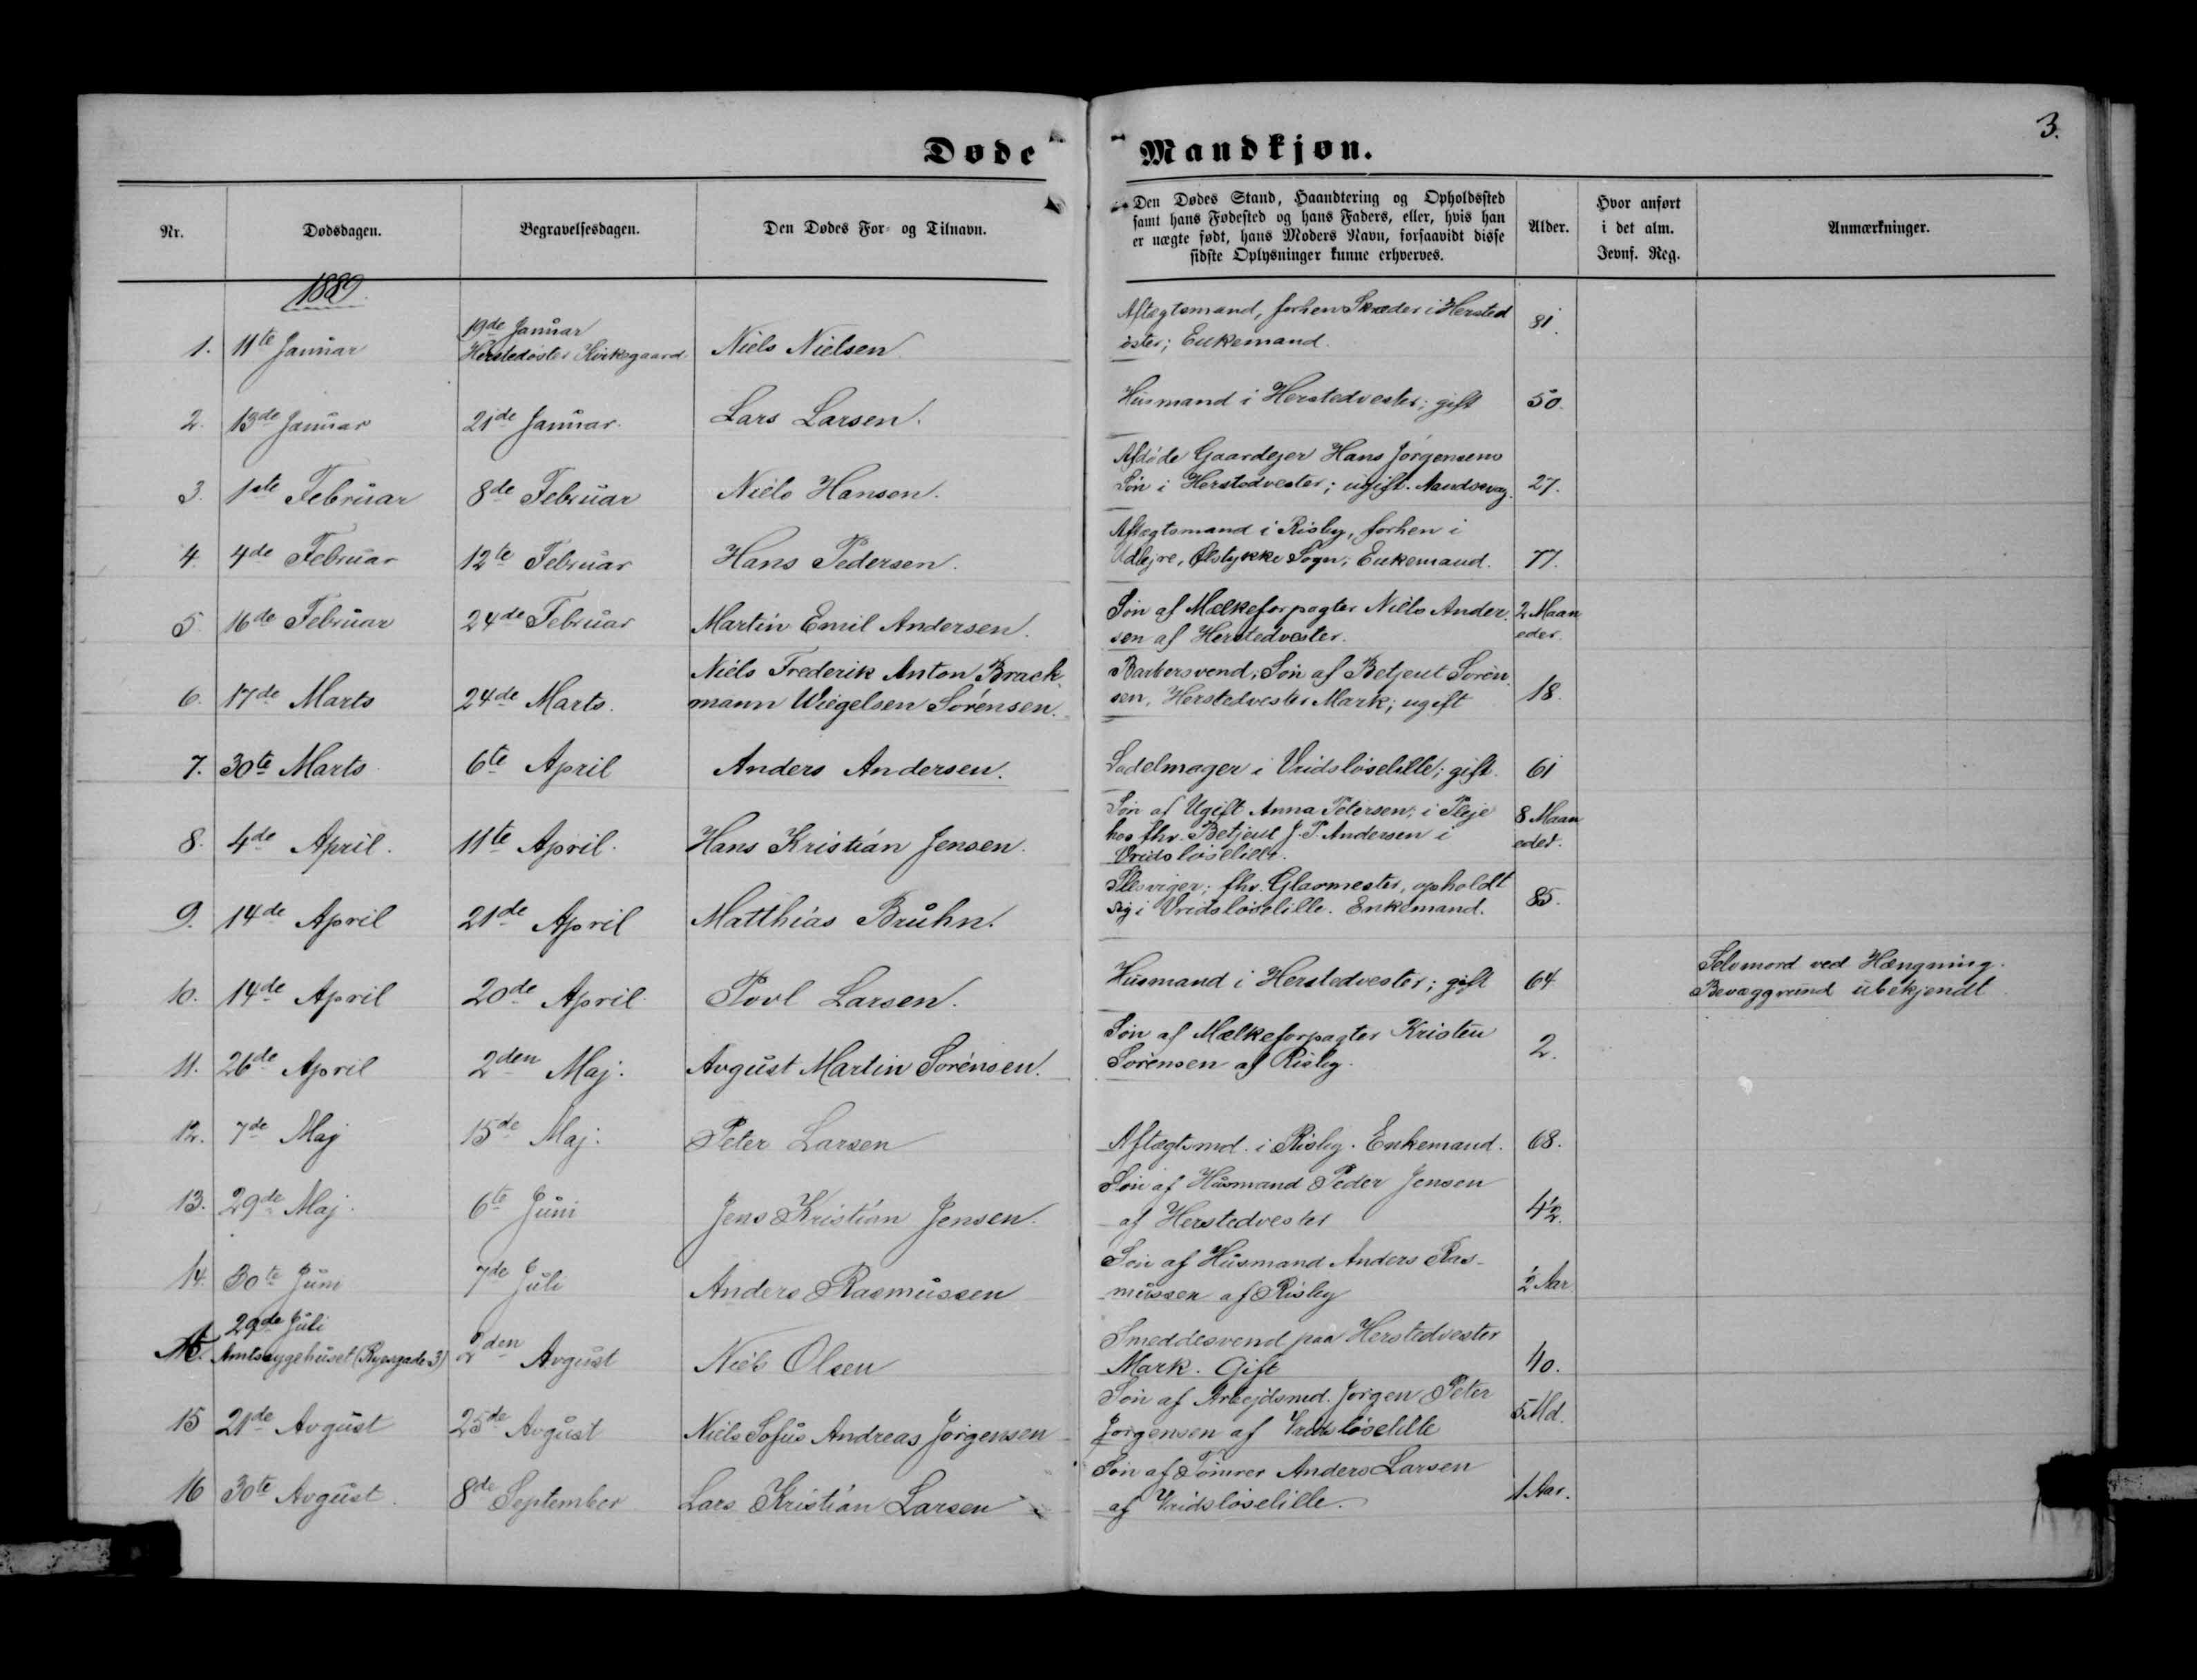 3.
Døde Mandkjøn.
Nr. Dødsdagen. Begravelsesdagen. Den Dødes For- og Tilnavn. Den Dødes Stand, Haandtering og Opholdssted Alder. Hvor anført Anmærkninger.
samt hans Fødested og hans Faders, eller, hvis han i det alm.
er uægte født, hans Moders Navn, forsaavidt disse Jevnf. Reg.
sidste Oplysninger kunne erhverves.
1880.
1. 11te Januar 19de Januar Niels Nielsen Aftægtsmand, forhen Skræder i Hersted 81.
Herstedøster Kirkegaard. øster; Enkemand.
2. 13de Januar 21de Januar. Lars Larsen. Husmand i Herstedvester; gift 50.
3. 1ste Februar 8de Februar Niels Hansen. Afdøde Gaardejer Hans Jørgensens
Søn i Herstedvester; ugift. Aandsvag. 27.
4. 4de Februar 12te Februar Hans Pedersen. Aftægtsmand i Risby, forhen i
Udlejre, Ølstykke Sogn; Enkemand. 77.
5. 16de Februar 24de Februar Martin Emil Andersen. Søn af Mælkeforpagter Niels Ander- 2 Maan
sen af Herstedvester. eder.
6. 17de Marts 24de Marts. Niels Frederik Anton Brack- Barbersvend; Søn af Betjent Søren-
mann Wiegelsen Sørensen. sen, Herstedvester Mark; ugift 18.
7. 30te Marts 6te April Anders Andersen. Sadelmager i Vridsløselille; gift. 61
8. 4de April. 11te April. Hans Kristian Jensen. Søn af Ugift Anna Petersen; i Pleje 8 Maan
hos fhv. Betjent J. P. Andersen i eder.
Vridsløselille.
9. 14de April 21de April Matthias Bruhn. Slesviger; fhv. Glarmester, opholdt
sig i Vridsløselille. Enkemand. 85.
10. 14de April 20de April Povl Larsen. Husmand i Herstedvester; gift 64 Selvmord ved Hængning.
Bevæggrund ubekjendt
11. 26de April 2den Maj. Avgust Martin Sørensen. Søn af Mælkeforpagter Kristen
Sørensen af Risby. 2.
12. 7de Maj 15de Maj. Peter Larsen Aftægtsmd. i Risby. Enkemand. 68.
13. 29de Maj. 6te Juni Jens Kristian Jensen. Søn af Husmand Peder Jensen
af Herstedvester 4½.
14. 30te Juni 7de Juli Anders Rasmussen Søn af Husmand Anders Ras-
mussen af Risby ½ Aar
29de Juli
Amtssygehuset (Ryesgade 3) 2den Avgust Niels Olsen Smeddesvend paa Herstedvester
Mark. Gift 40.
15 21de Avgust 25de Avgust Niels Sofus Andreas Jørgensen Søn af Arbejdsmd. Jørgen Peter
Jørgensen af Vridsløselille 5 Md.
16 30te Avgust. 8de September Lars Kristian Larsen Søn af Tømrer Anders Larsen
af Vridsløselille. 1 Aar.